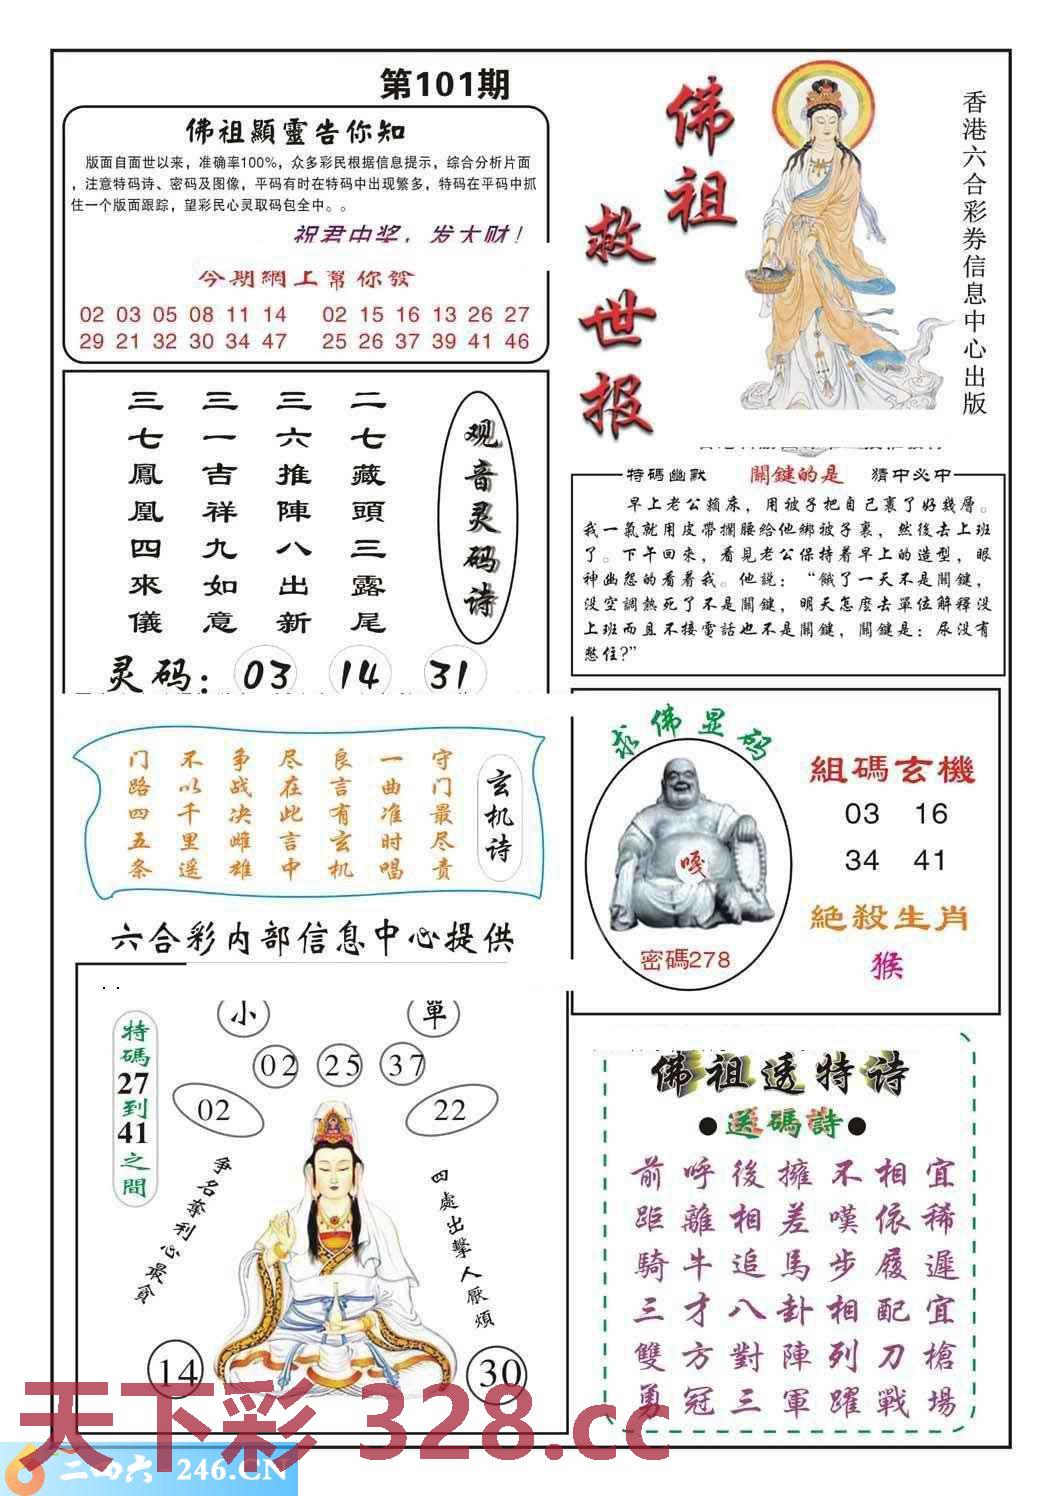 第101期
佛祖顯靈告你知
版面自面世以来，准确率100%，众多彩民根据信息提示，综合分析片面
，注意特码诗、密码及图像，平码有时在特码中出现繁多，特码在平码中抓
住一个版面跟踪，望彩民心灵取码包全中。。
祝君中奖，发大财！
今期網上幫你發
02 03 05 08 11 14 02 15 16 13 26 27
29 21 32 30 34 47 25 26 37 39 41 46
佛祖
救世报
香港六合彩券信息中心出版
观音灵码诗
二七藏頭三露尾
三六推陳八出新
三一吉祥九如意
三七鳳凰四來儀
灵码：03 14 31
特碼幽默 關鍵的是 猜中必中
早上老公賴床，用被子把自己裹了好幾層。
我一氣就用皮帶攔腰給他綁被子裹，然後去上班
了。下午回來，看見老公保持着早上的造型，眼
神幽怨的看着我。他説：“餓了一天不是關鍵，
没空調熱死了不是關鍵，明天怎麽去單位解釋没
上班而且不接電話也不是關鍵，關鍵是：尿没有
憋住？”
玄机诗
守门最尽责
一曲准时唱
良言有玄机
尽在此言中
争战决雌雄
不以千里遥
门路四五条
六合彩内部信息中心提供
求佛显码
嘎
密碼278
組碼玄機
03 16
34 41
絕殺生肖
猴
特碼27到41之間
小 單
02 25 37
02 22
争名奪利心最貪
四處出擊人厭煩
14 30
佛祖透特诗
●送碼詩●
前呼後擁不相宜
距離相差嘆依稀
騎牛追馬步履遲
三才八卦相配宜
雙方對陣列刀槍
勇冠三軍躍戰場
天下彩 328.cc
二四六 246.CN